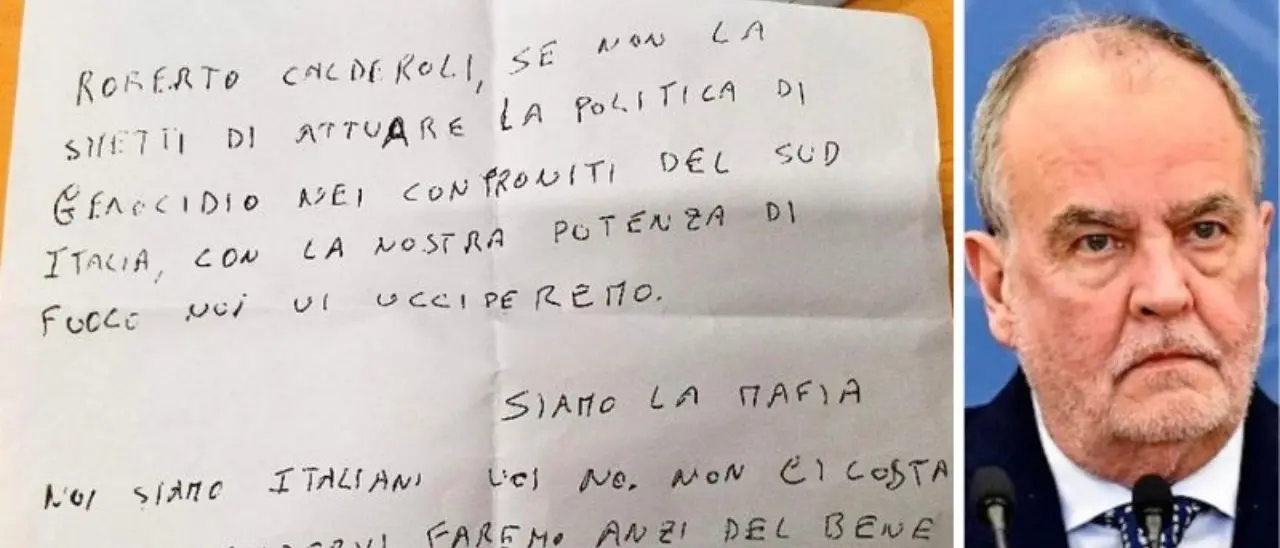 ROBERTO CALDEROLI, SE NON LA
SMETTI DI ATTUARE LA POLITICA DI
GENOCIDIO NEI CONFRONITI DEL SUD
ITALIA, CON LA NOSTRA POTENZA DI
FUOCO NOI VI UCCIDEREMO.
SIAMO LA MAFIA
NOI SIAMO ITALIANI VOI NO. NON CI COSTA
FAREMO ANZI DEL BENE